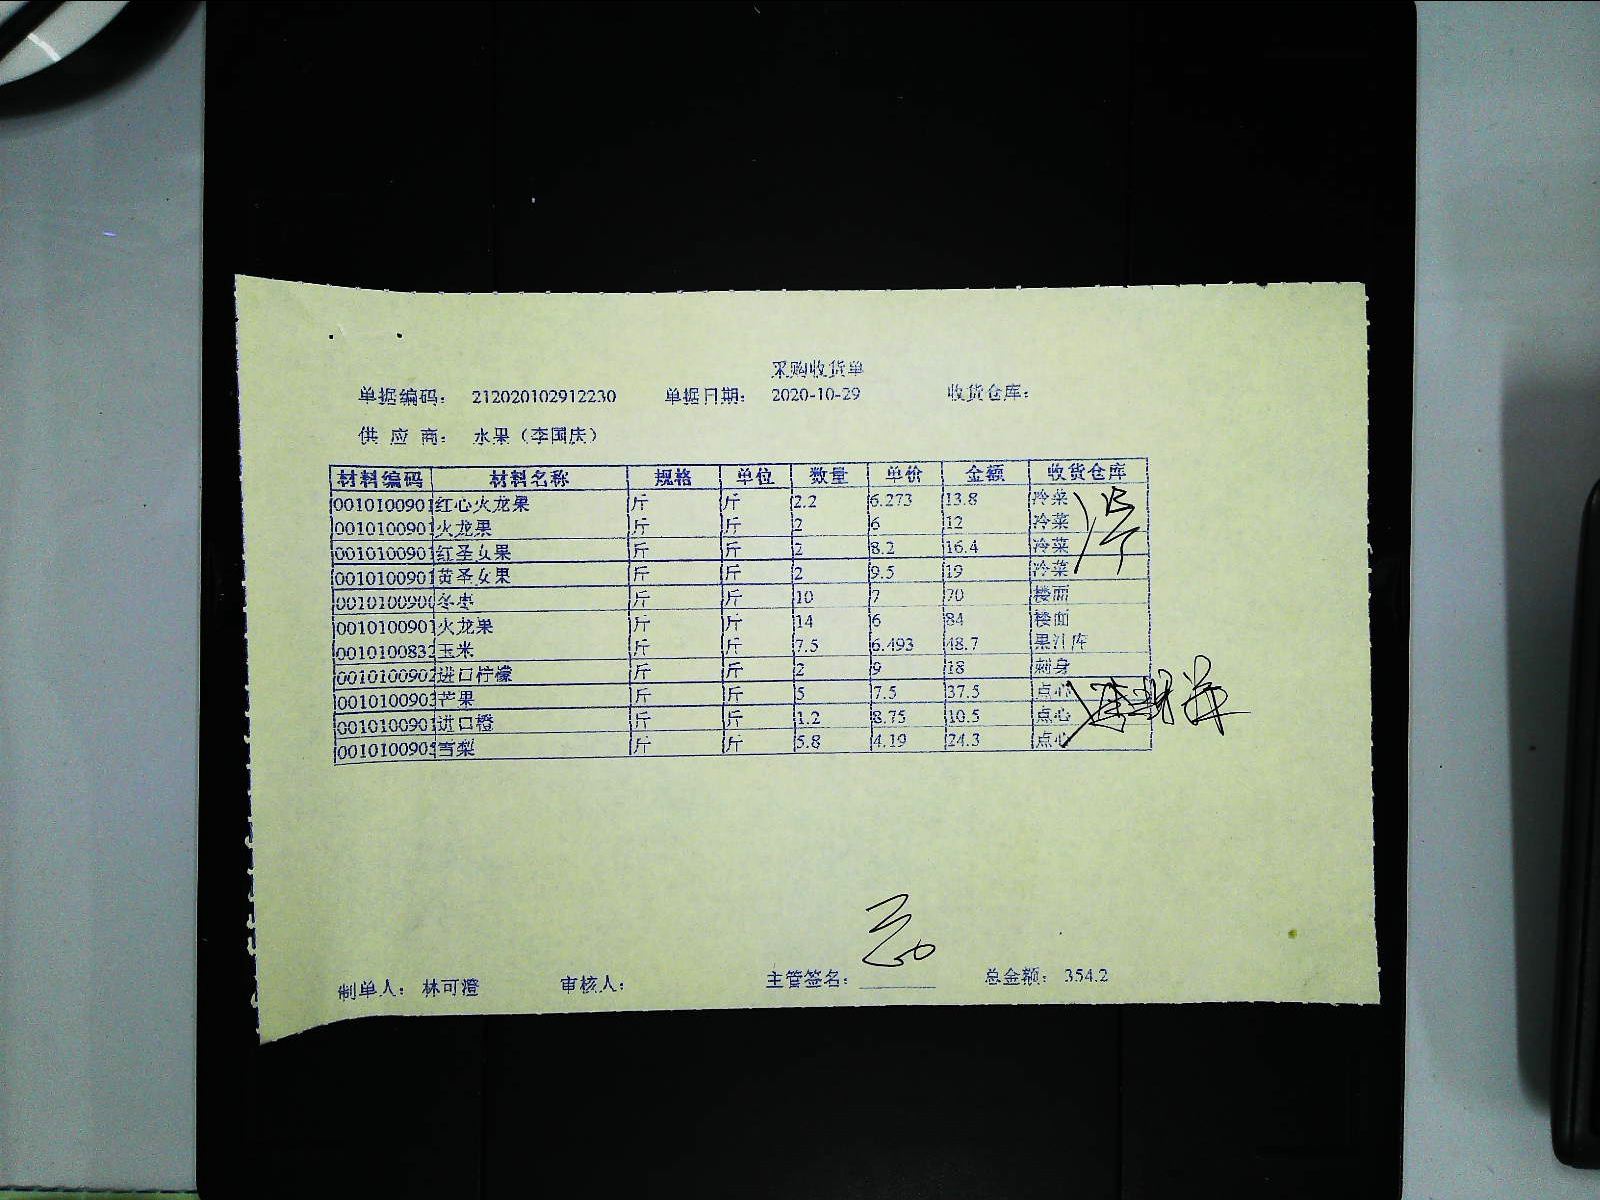 采购收货单
单据编码： 212020102912230 单据日期： 2020-10-29 收货仓库：
供 应 商： 水果（李国庆）
材料编码 材料名称 规格 单位 数量 单价 金额 收货仓库
0010100901 红心火龙果 斤 斤 2.2 6.273 13.8 冷菜
0010100901 火龙果 斤 斤 2 6 12 冷菜
0010100901 红圣女果 斤 斤 2 8.2 16.4 冷菜
0010100901 黄圣女果 斤 斤 2 9.5 19 冷菜
0010100900 冬枣 斤 斤 10 7 70 楼面
0010100901 火龙果 斤 斤 14 6 84 楼面
0010100832 玉米 斤 斤 7.5 6.493 48.7 果汁库
0010100902 进口柠檬 斤 斤 2 9 18 刺身
0010100903 芒果 斤 斤 5 7.5 37.5 点心
0010100901 进口橙 斤 斤 1.2 8.75 10.5 点心
0010100905 雪梨 斤 斤 5.8 4.19 24.3 点心
制单人： 林可澄 审核人： 主管签名： 总金额： 354.2